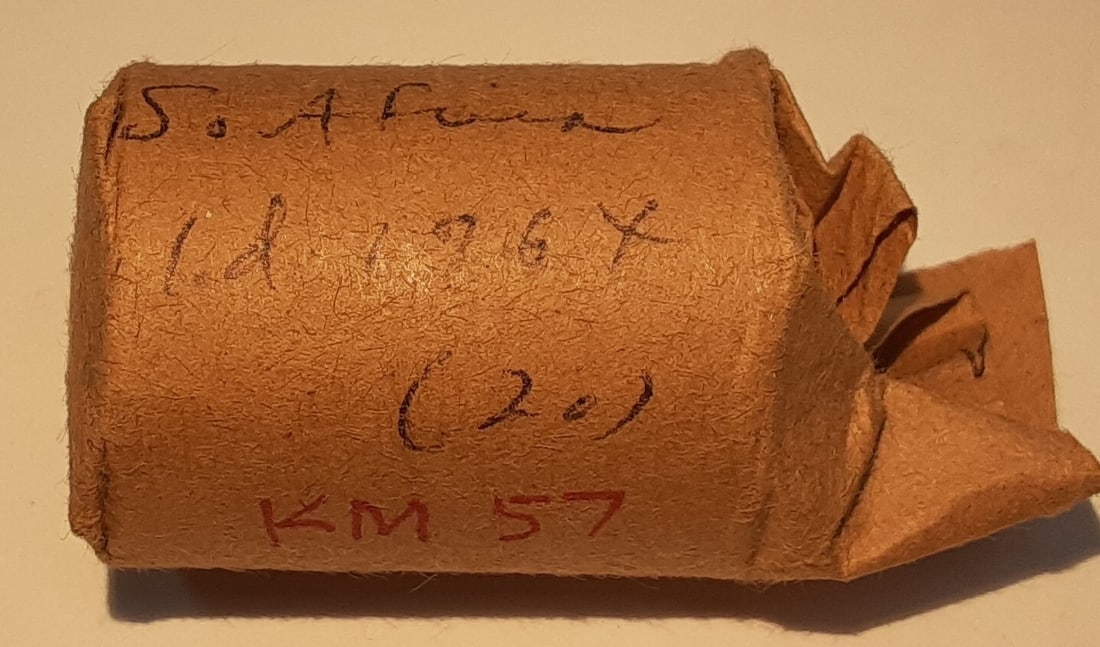 S. Africa
1d 1964
(20)
KM 57